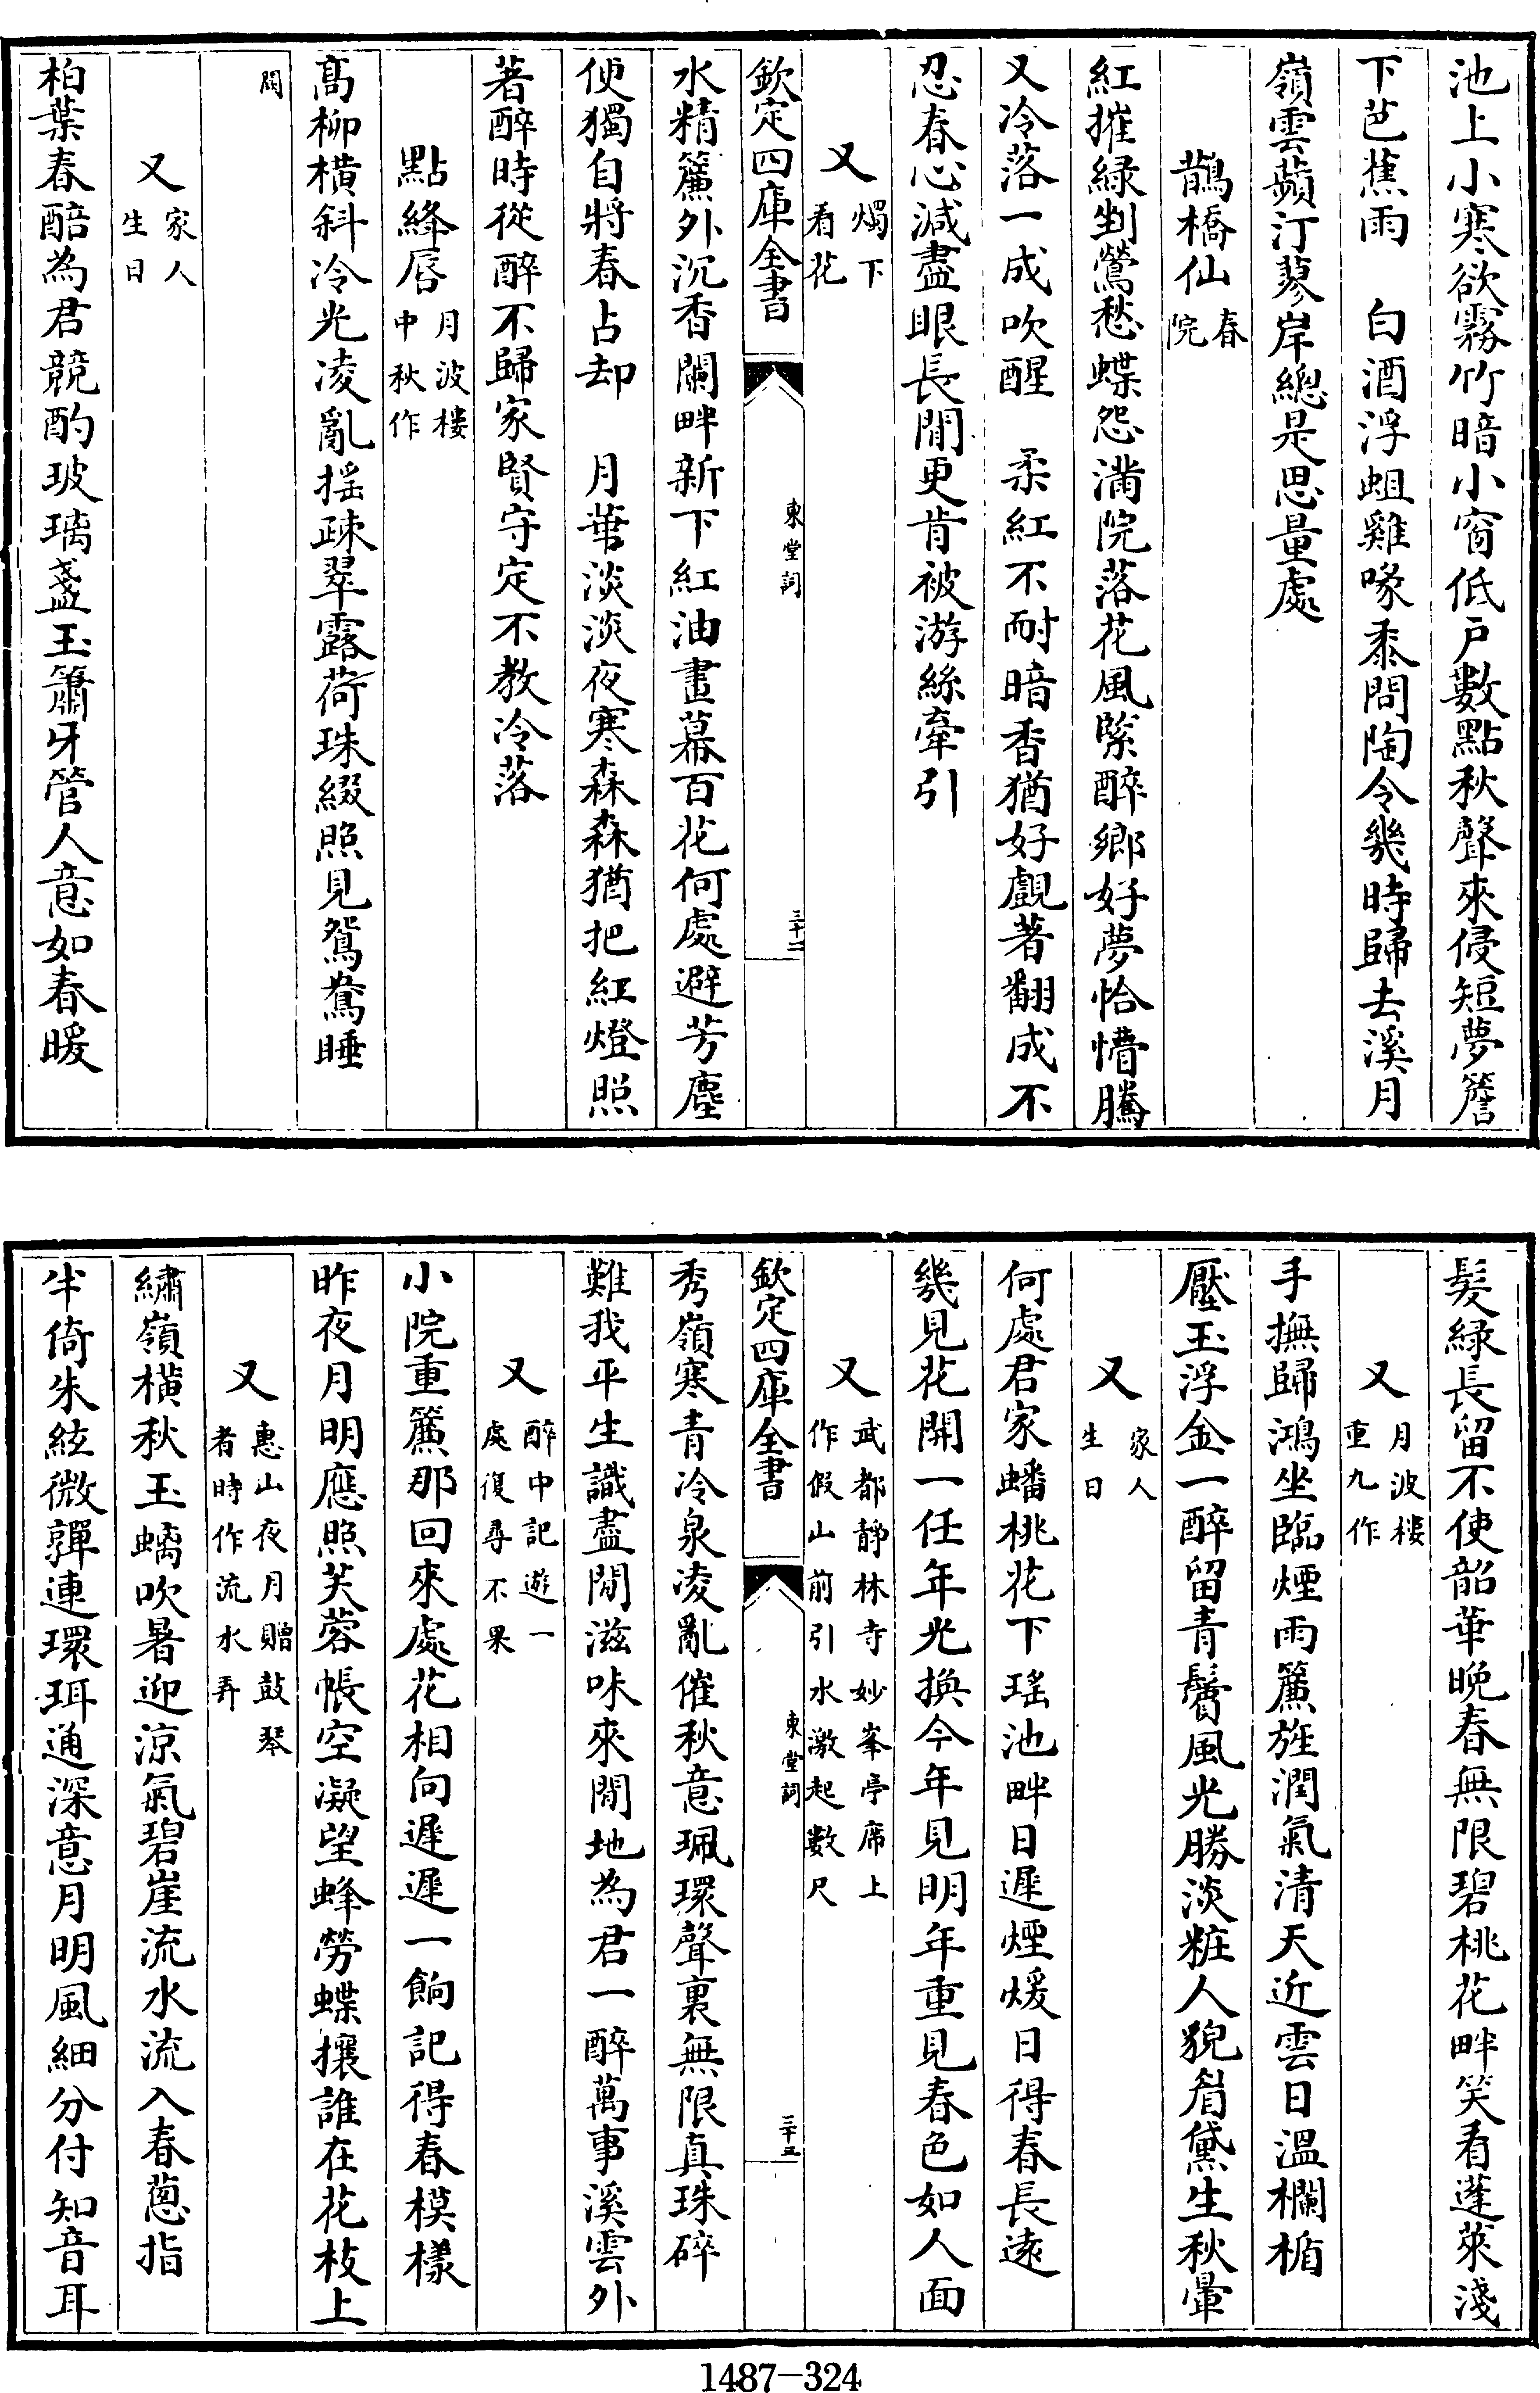 池上小寒欲霧竹暗小窗低戶數點秋聲來侵短夢簷
下芭蕉雨　白酒浮蛆雞啄黍問陶令幾時歸去溪月
嶺雲蘋汀蓼岸總是思量處
鵲橋仙春院
紅摧綠剉鶯愁蝶怨滿院落花風緊醉鄉好夢恰懵騰
又冷落一成吹醒　柔紅不耐暗香猶好覷著翻成不
忍春心減盡眼長閒更肯被游絲牽引
又燭下看花
欽定四庫全書　東堂詞　三十二
水精簾外沉香闌畔新下紅油畫幕百花何處避芳塵
便獨自將春占却　月華淡淡夜寒森森猶把紅燈照
著醉時從醉不歸家賢守定不教冷落
點絳唇月波樓中秋作
高柳橫斜冷光凌亂搖疎翠露荷珠綴照見鴛鴦睡
闕
又家人生日
柏葉春醅為君競酌玻璃盞玉簫牙管人意如春暖
髮綠長留不使韶華晚春無限碧桃花畔笑看蓬萊淺
又月波樓重九作
手撫歸鴻坐臨煙雨簾旌潤氣清天近雲日溫欄楯
壓玉浮金一醉留青鬢風光勝淡粧人貌眉黛生秋暈
又家人生日
何處君家蟠桃花下瑤池畔日遲煙煖日得春長遠
幾見花開一任年光換今年見明年重見春色如人面
又武都靜林寺妙峯亭席上作假山前引水激起數尺
欽定四庫全書　東堂詞　三十三
秀嶺寒青冷泉凌亂催秋意珮環聲裏無限真珠碎
難我平生識盡閒滋味來閒地為君一醉萬事溪雲外
又醉中記遊一處復尋不果
小院重簾那回來處花相向遲遲一餉記得春模樣
昨夜月明應照芙蓉帳空凝望蜂勞蝶攘誰在花枝上
又惠山夜月贈鼓琴者時作流水弄
繡嶺橫秋玉螭吹暑迎涼氣碧崖流水流入春蔥指
半倚朱絃微嚲連環珥通深意月明風細分付知音耳
1487-324